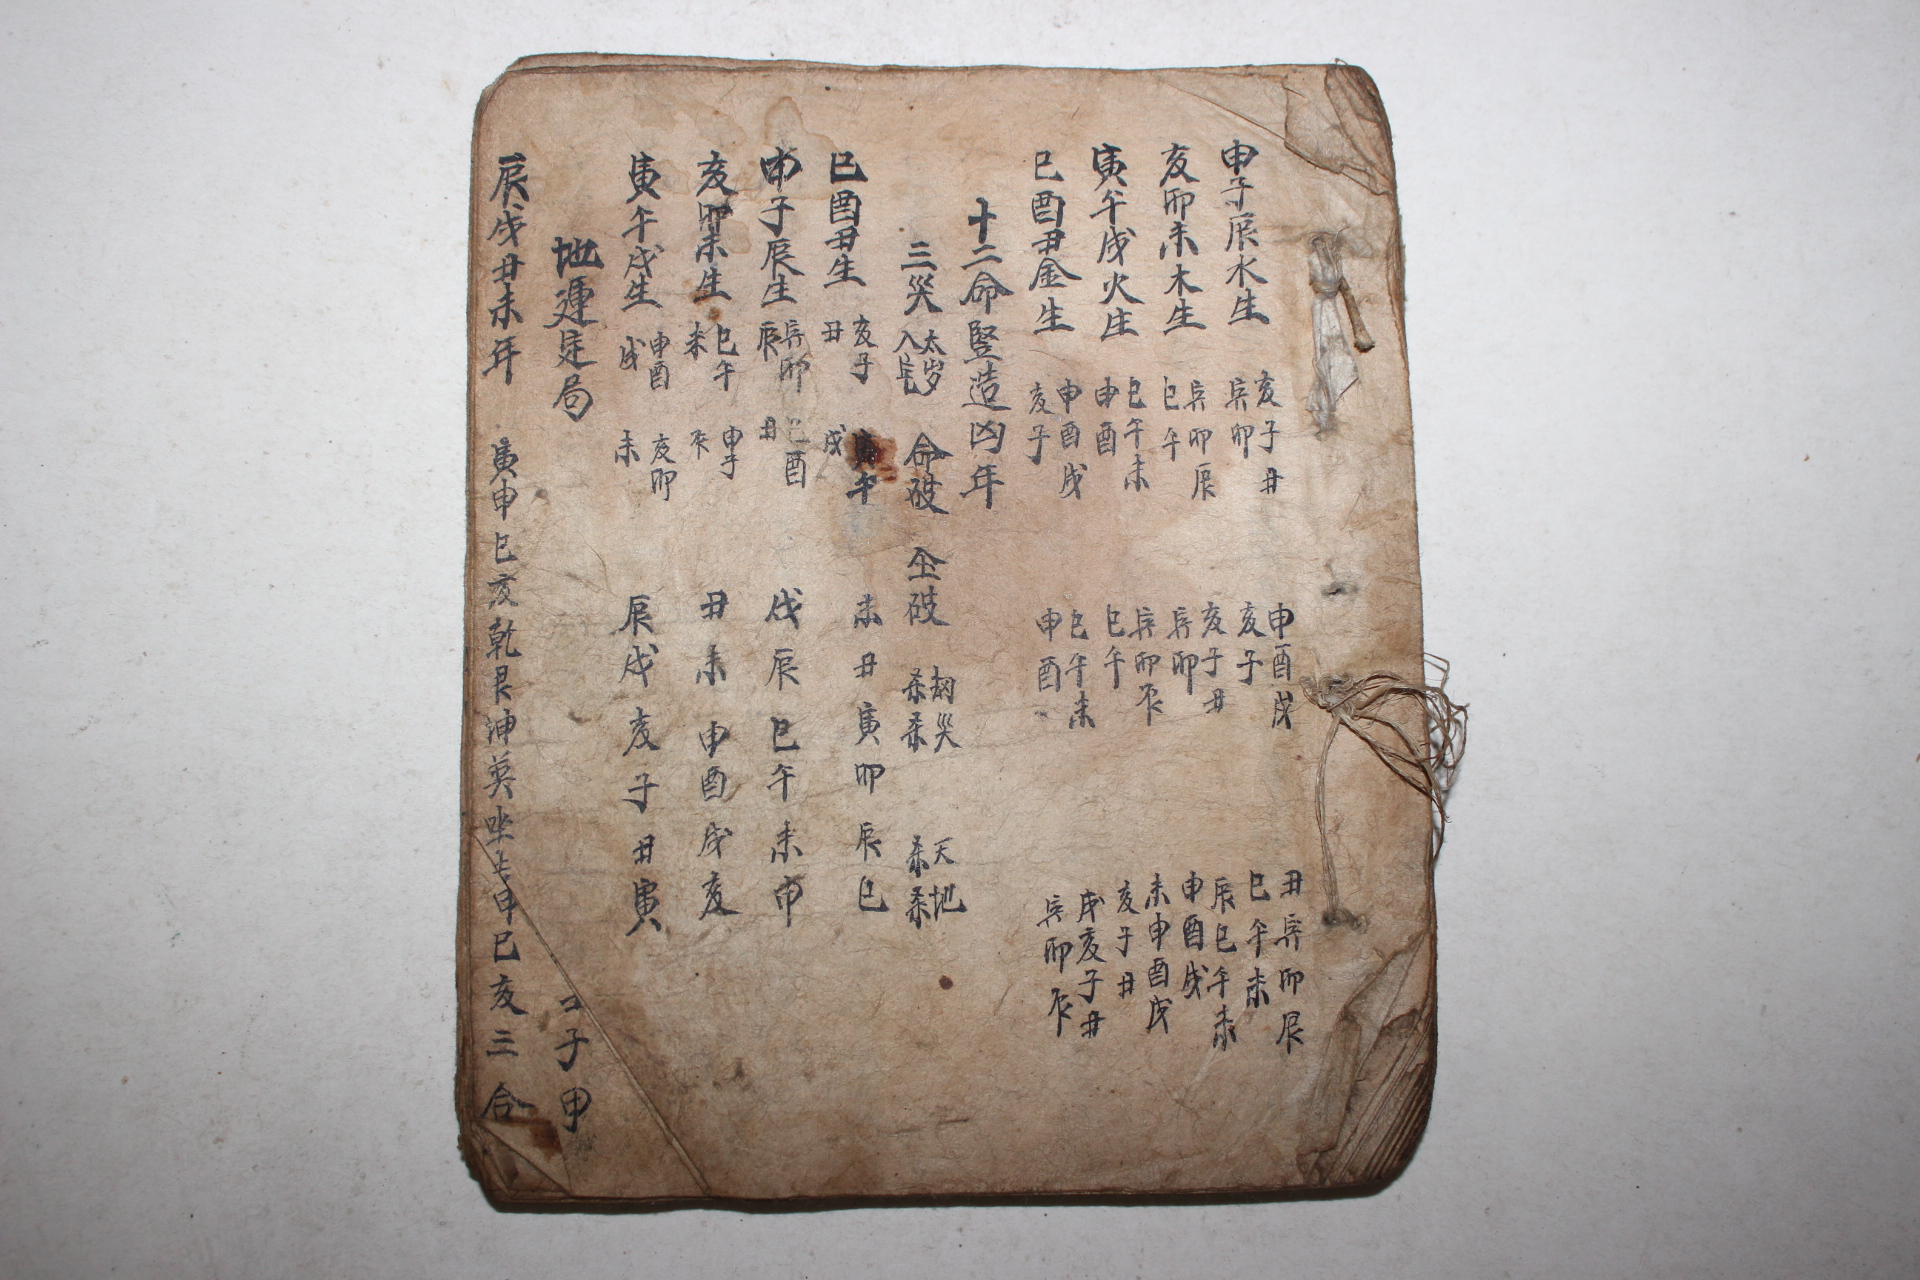 申子辰水生 亥子丑 寅卯 申酉戌 亥子 丑寅卯辰 巳午未
亥卯未木生 寅卯辰 巳午 亥子丑 寅卯 辰巳午未 申酉戌
寅午戌火生 巳午未 申酉 寅卯辰 巳午 未申酉戌 亥子丑
巳酉丑金生 申酉戌 亥子 巳午未 申酉 戌亥子丑 寅卯辰
十二命竪造凶年
三災 太岁 入宅 命破 仝破 劫災 杀杀 天地 杀杀
巳酉丑生 亥子丑 寅午戌 未 丑 寅 卯 辰 巳
申子辰生 寅卯辰 巳酉丑 戌 辰 巳 午 未 申
亥卯未生 巳午未 申子辰 丑 未 申 酉 戌 亥
寅午戌生 申酉戌 亥卯未 辰 戌 亥 子 丑 寅
地運定局 子 甲
辰戌丑未年 寅申巳亥乾艮坤巽坐 申巳亥三合